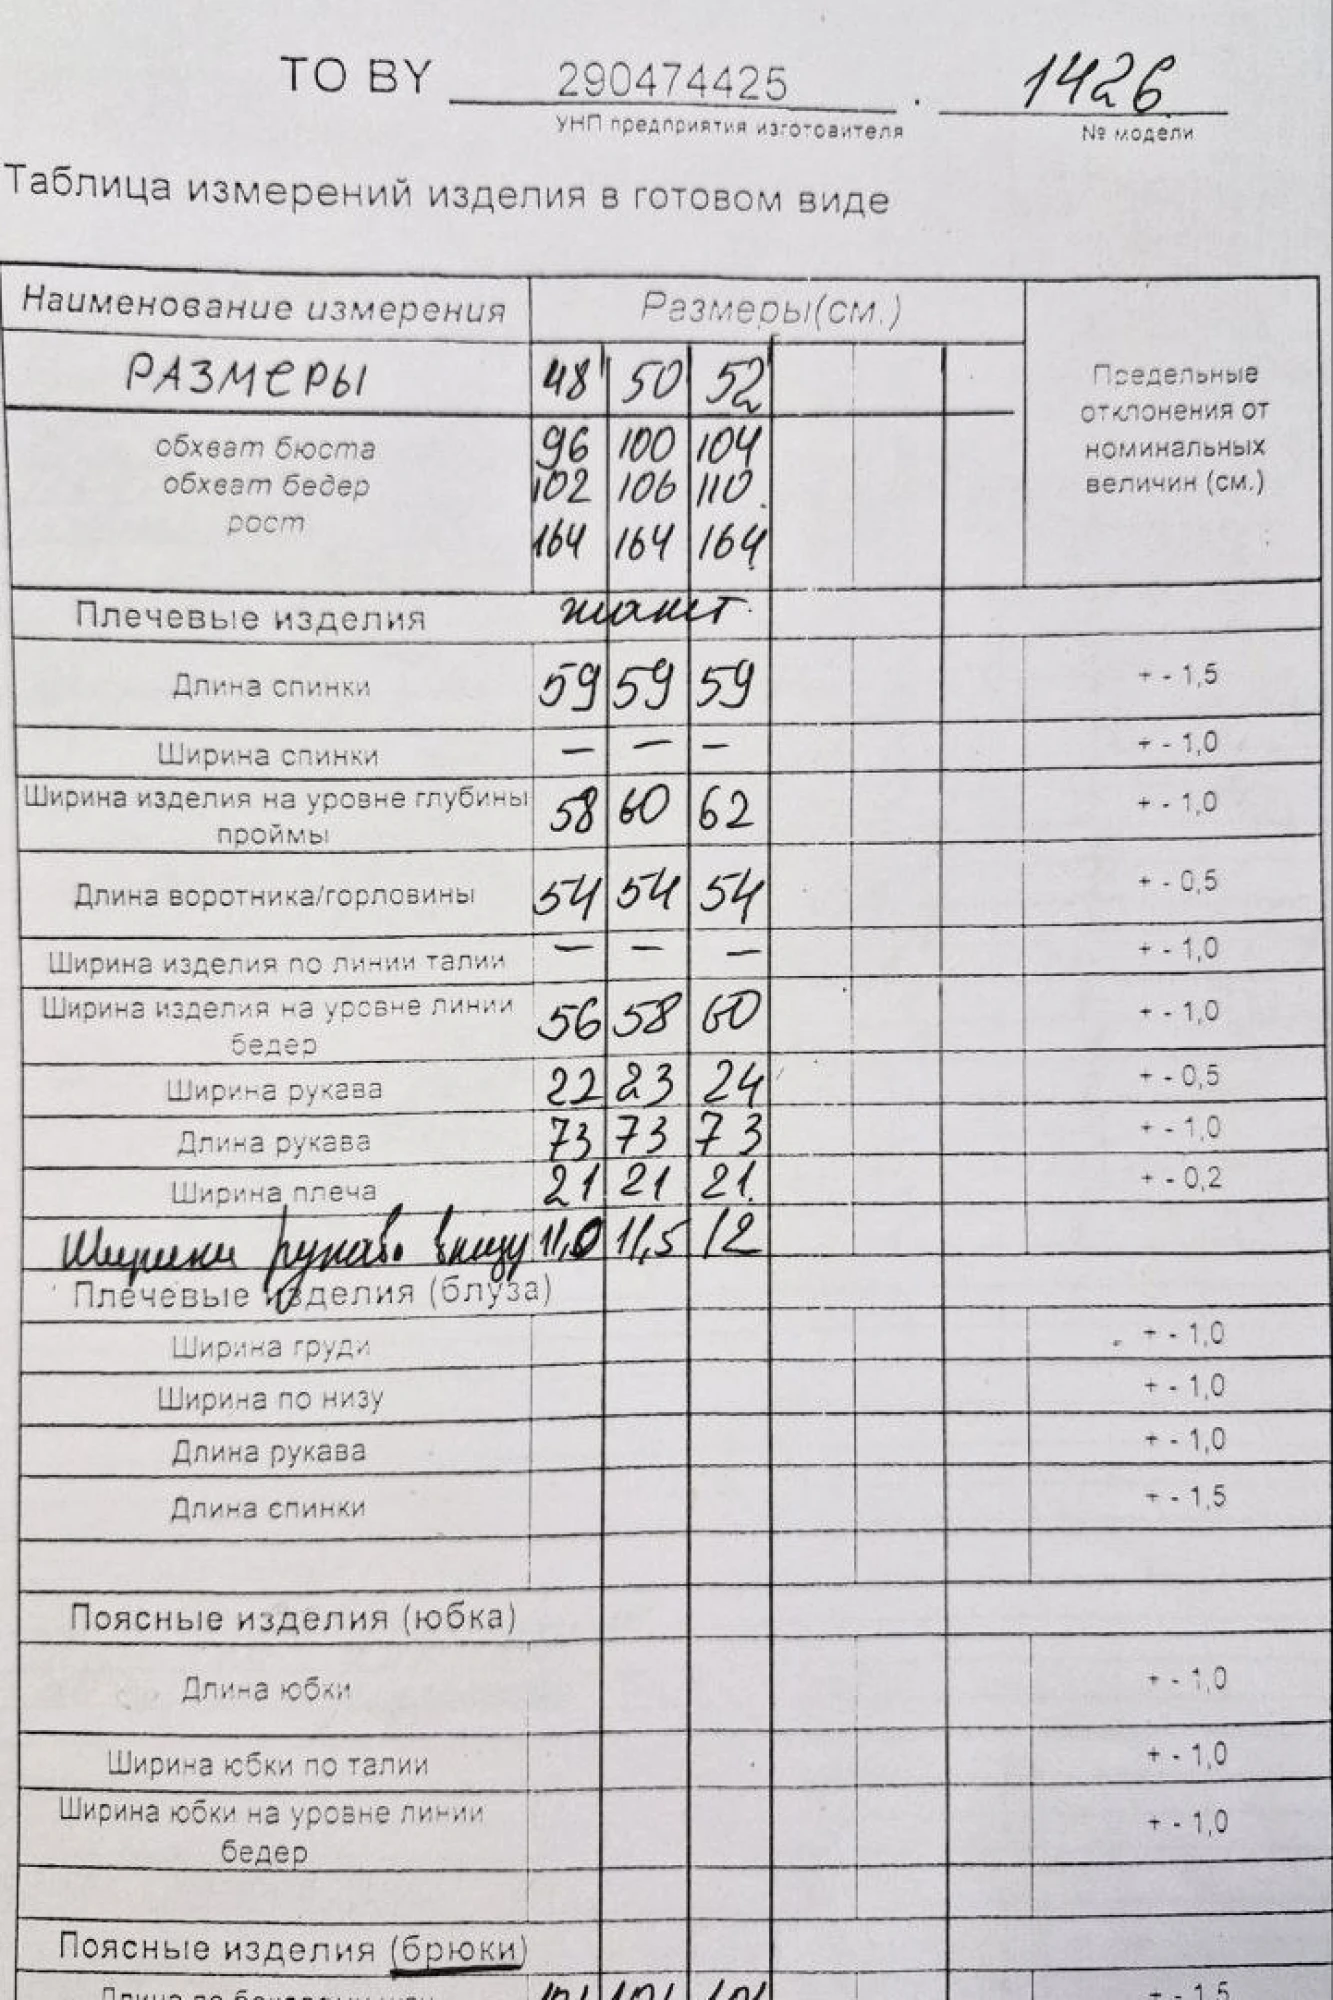 TO BY 290474425 . 1426
УНП предприятия изготовителя № модели
Таблица измерений изделия в готовом виде
Наименование измерения Размеры(см.) Предельные отклонения от номинальных величин (см.)
РАЗМЕРЫ 48 50 52
обхват бюста 96 100 104
обхват бедер 102 106 110
рост 164 164 164
Плечевые изделия жакет
Длина спинки 59 59 59 + - 1,5
Ширина спинки — — — + - 1,0
Ширина изделия на уровне глубины
проймы 58 60 62 + - 1,0
Длина воротника/горловины 54 54 54 + - 0,5
Ширина изделия по линии талии — — — + - 1,0
Ширина изделия на уровне линии
бедер 56 58 60 + - 1,0
Ширина рукава 22 23 24 + - 0,5
Длина рукава 73 73 73 + - 1,0
Ширина плеча 21 21 21 + - 0,2
Ширина рукава внизу 11,0 11,5 12
Плечевые изделия (блуза)
Ширина груди + - 1,0
Ширина по низу + - 1,0
Длина рукава + - 1,0
Длина спинки + - 1,5
Поясные изделия (юбка)
Длина юбки + - 1,0
Ширина юбки по талии + - 1,0
Ширина юбки на уровне линии
бедер + - 1,0
Поясные изделия (брюки)
101 101 101 + - 1,5